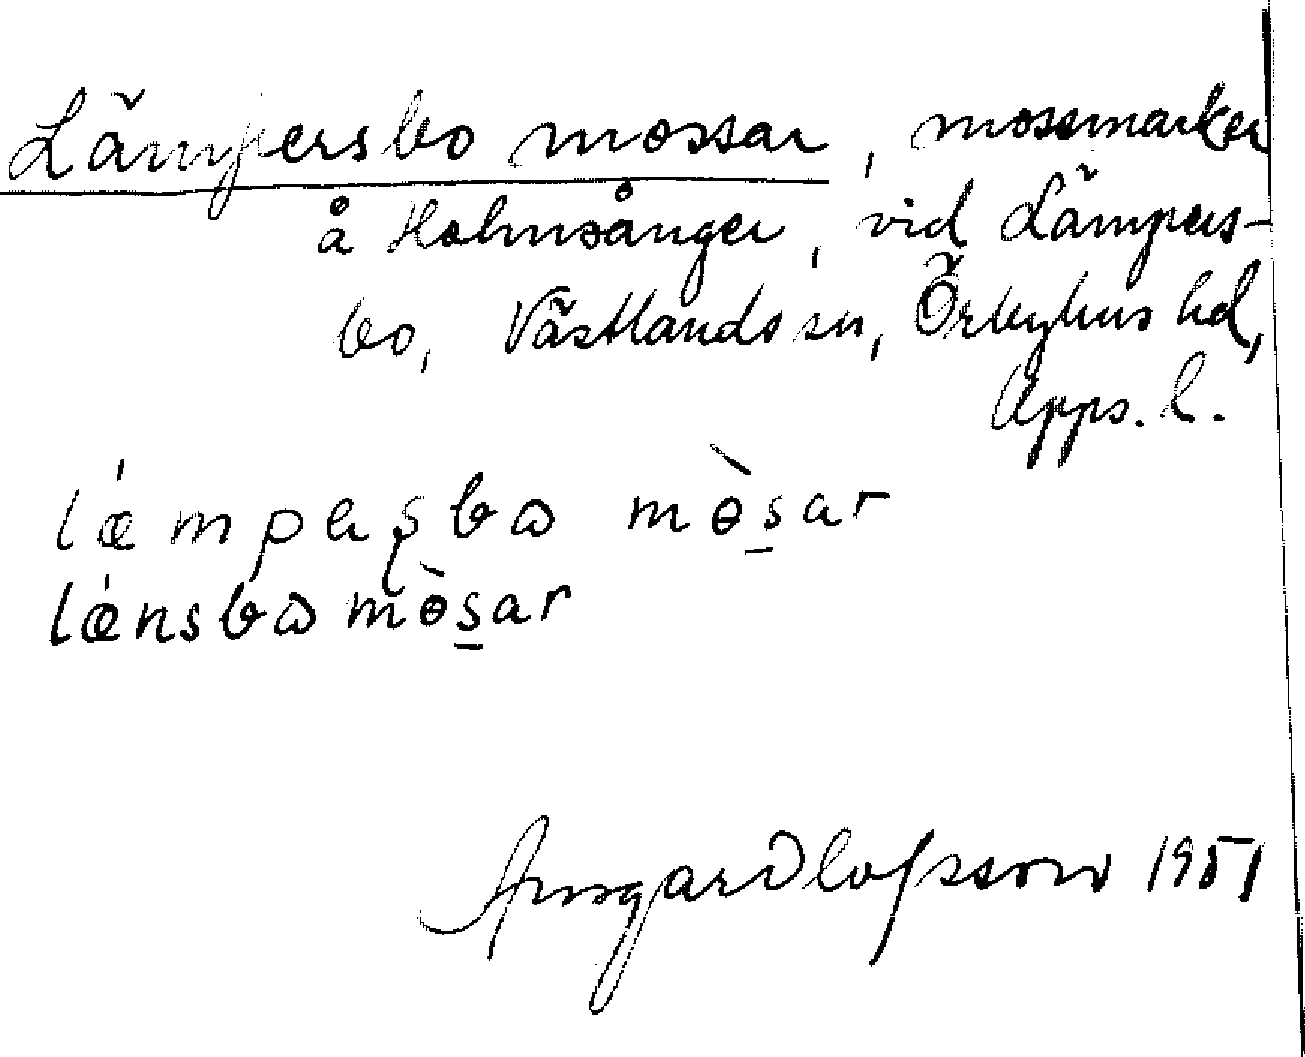 Lämpersbo mossar, mossmarker
å Holmsånger, vid Lämpers-
bo, Västlands sn, Örbyhus hd,
Upps. l.
lǽmpaʂbɷ mɵ̀s̱ar
lǽnsbɷ mɵ̀s̱ar
Ansgar Olofsson 1951